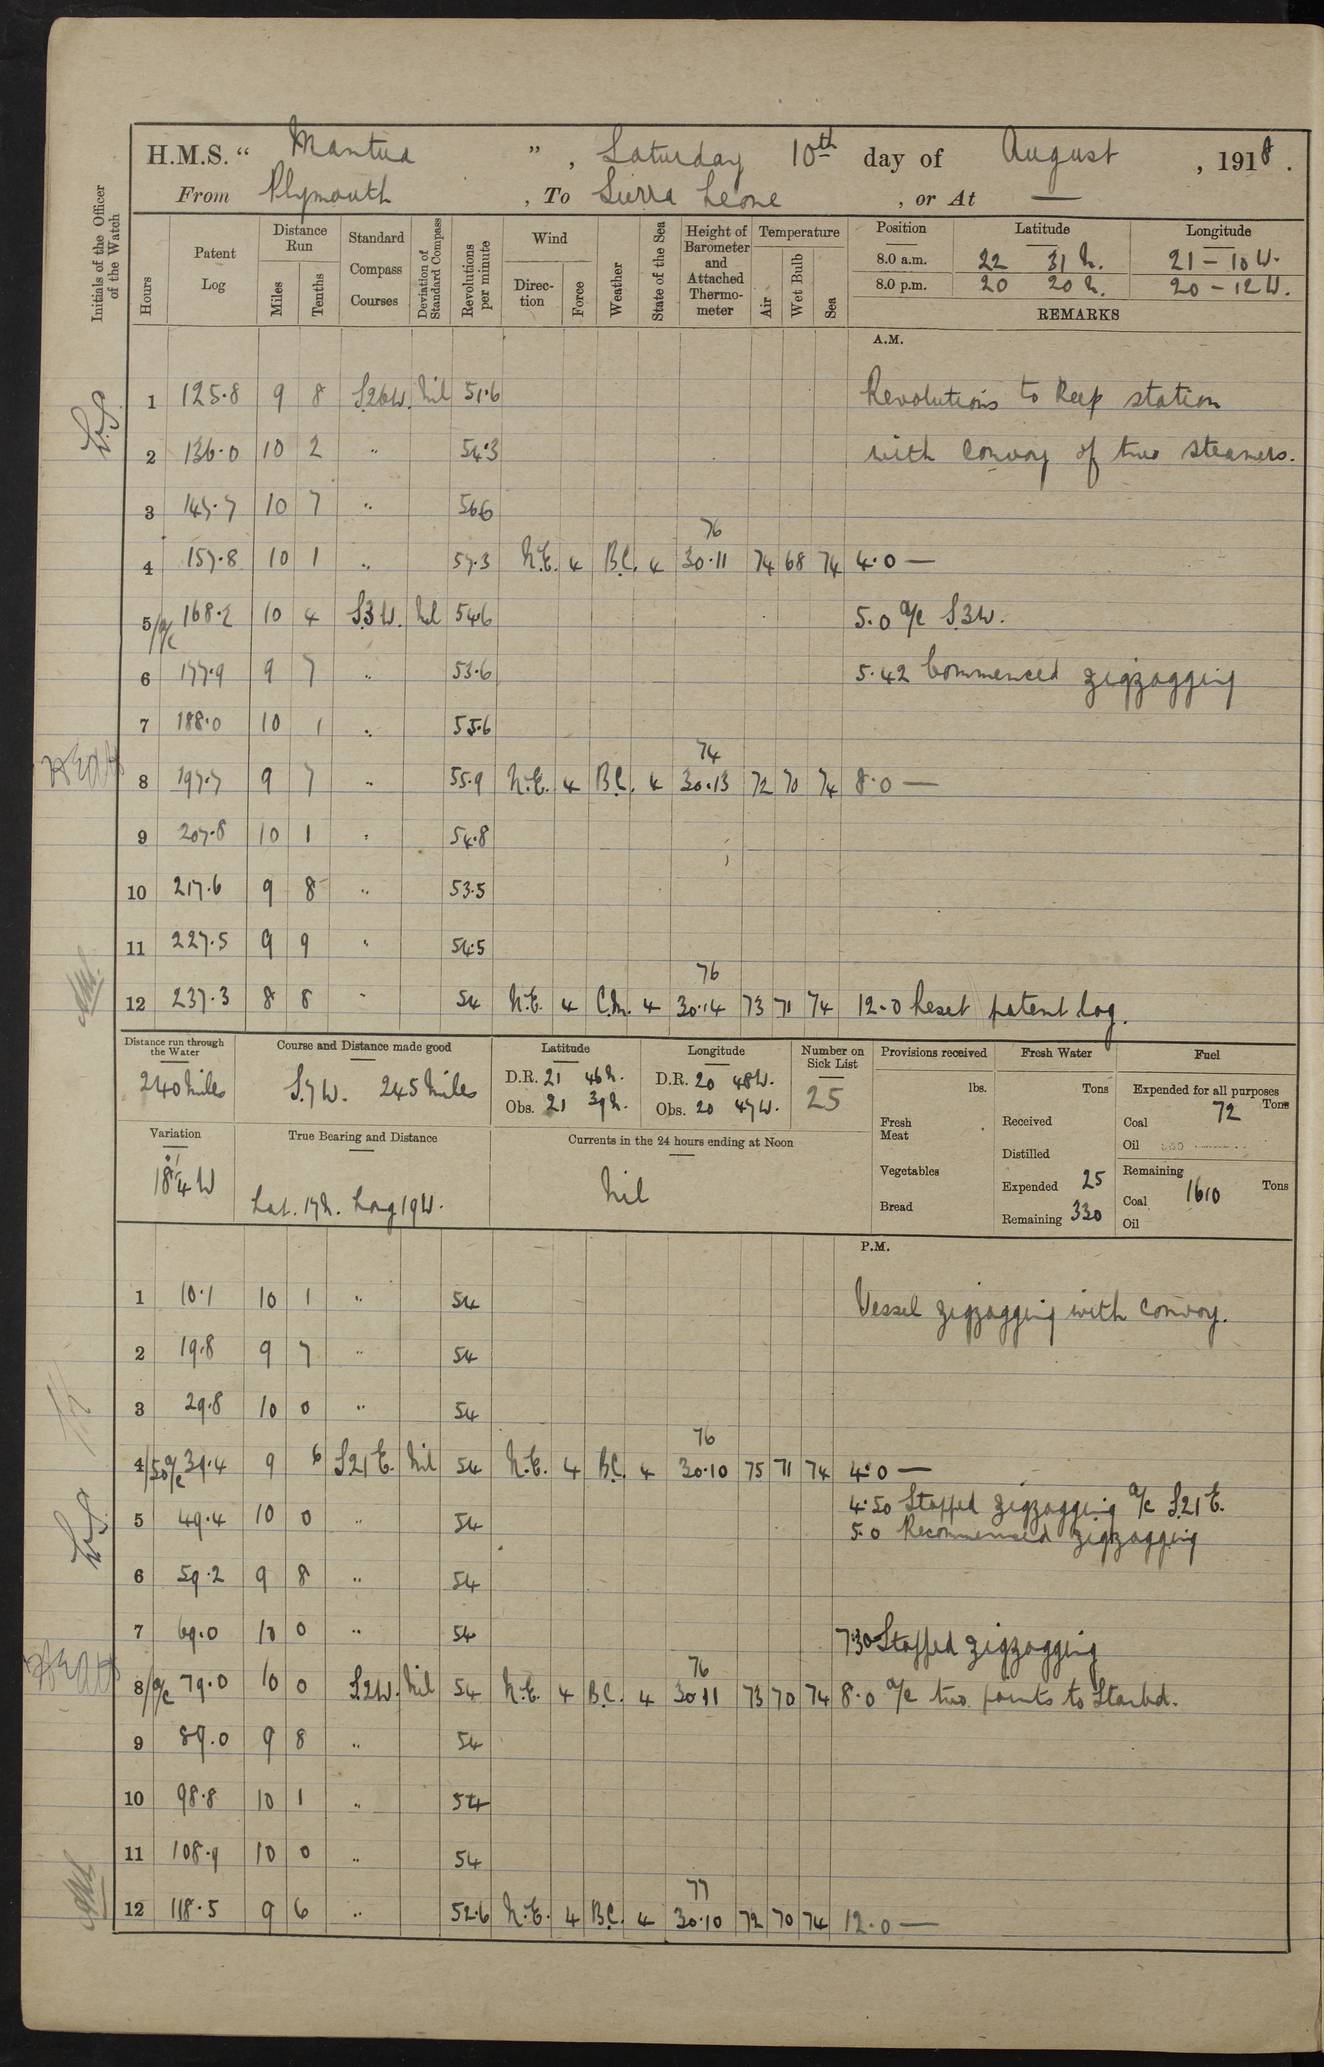 H.M.S. “ Mantua ” , Saturday 10th day of August , 1918 .
From Plymouth , To Sierra Leone , or At —
Initials of the Officer of the Watch
Hours
Patent Log
Distance Run
Miles
Tenths
Standard Compass Courses
Deviation of Standard Compass
Revolutions per minute
Wind
Direction
Force
Weather
State of the Sea
Height of Barometer and Attached Thermometer
Temperature
Air
Wet Bulb
Sea
Position Latitude Longitude
8.0 a.m. 22 31 N. 21 – 10 W.
8.0 p.m. 20 20 N. 20 – 12 W.
REMARKS
A.M.
1 125.8 9 8 S.26W. Nil 51.6 Revolutions to keep station
2 136.0 10 2 " 54.3 with convoy of two steamers.
3 147.7 10 7 " 56.6
76
4 157.8 10 1 " 57.3 N.E. 4 B.C. 4 30.11 74 68 74 4.0 —
5/a/c 168.2 10 4 S.3W. Nil 54.6 5.0 a/c S.3W.
6 177.9 9 7 " 53.6 5.42 Commenced zigzagging
7 188.0 10 1 " 55.6
74
8 197.7 9 7 " 55.9 N.E. 4 B.C. 4 30.13 72 70 74 8.0 —
9 207.8 10 1 " 54.8
10 217.6 9 8 " 53.5
11 227.5 9 9 " 54.5
76
12 237.3 8 8 " 54 N.E. 4 C.M. 4 30.14 73 71 74 12.0 Reset patent log.
Distance run through the Water
240 Miles
Course and Distance made good
S.7W. 245 Miles
Latitude
D.R. 21 46 N.
Obs. 21 39 N.
Longitude
D.R. 20 48 W.
Obs. 20 47 W.
Number on Sick List
25
Provisions received
lbs.
Fresh Meat
Vegetables
Bread
Fresh Water
Tons
Received
Distilled
Expended 25
Remaining 330
Fuel
Expended for all purposes
Coal 72 Tons
Oil
Remaining
Coal 1610 Tons
Oil
Variation
18 1/4 W
True Bearing and Distance
Lat. 17 N. Long 19 W.
Currents in the 24 hours ending at Noon
Nil
P.M.
1 10.1 10 1 " 54 Vessel zigzagging with convoy.
2 19.8 9 7 " 54
3 29.8 10 0 " 54
76
4/50 a/c 39.4 9 6 S21E. Nil 54 N.E. 4 B.C. 4 30.10 75 71 74 4.0 —
4.50 Stopped zigzagging a/c S.21E.
5 49.4 10 0 " 54 5.0 Recommenced zigzagging
6 59.2 9 8 " 54
7 69.0 10 0 " 54 7.30 Stopped zigzagging
76
8/a/c 79.0 10 0 S.2W. Nil 54 N.E. 4 B.C. 4 30.11 73 70 74 8.0 a/c two points to Starbd.
9 89.0 9 8 " 54
10 98.8 10 1 " 54
11 108.9 10 0 " 54
77
12 118.5 9 6 " 52.6 N.E. 4 B.C. 4 30.10 72 70 74 12.0 —